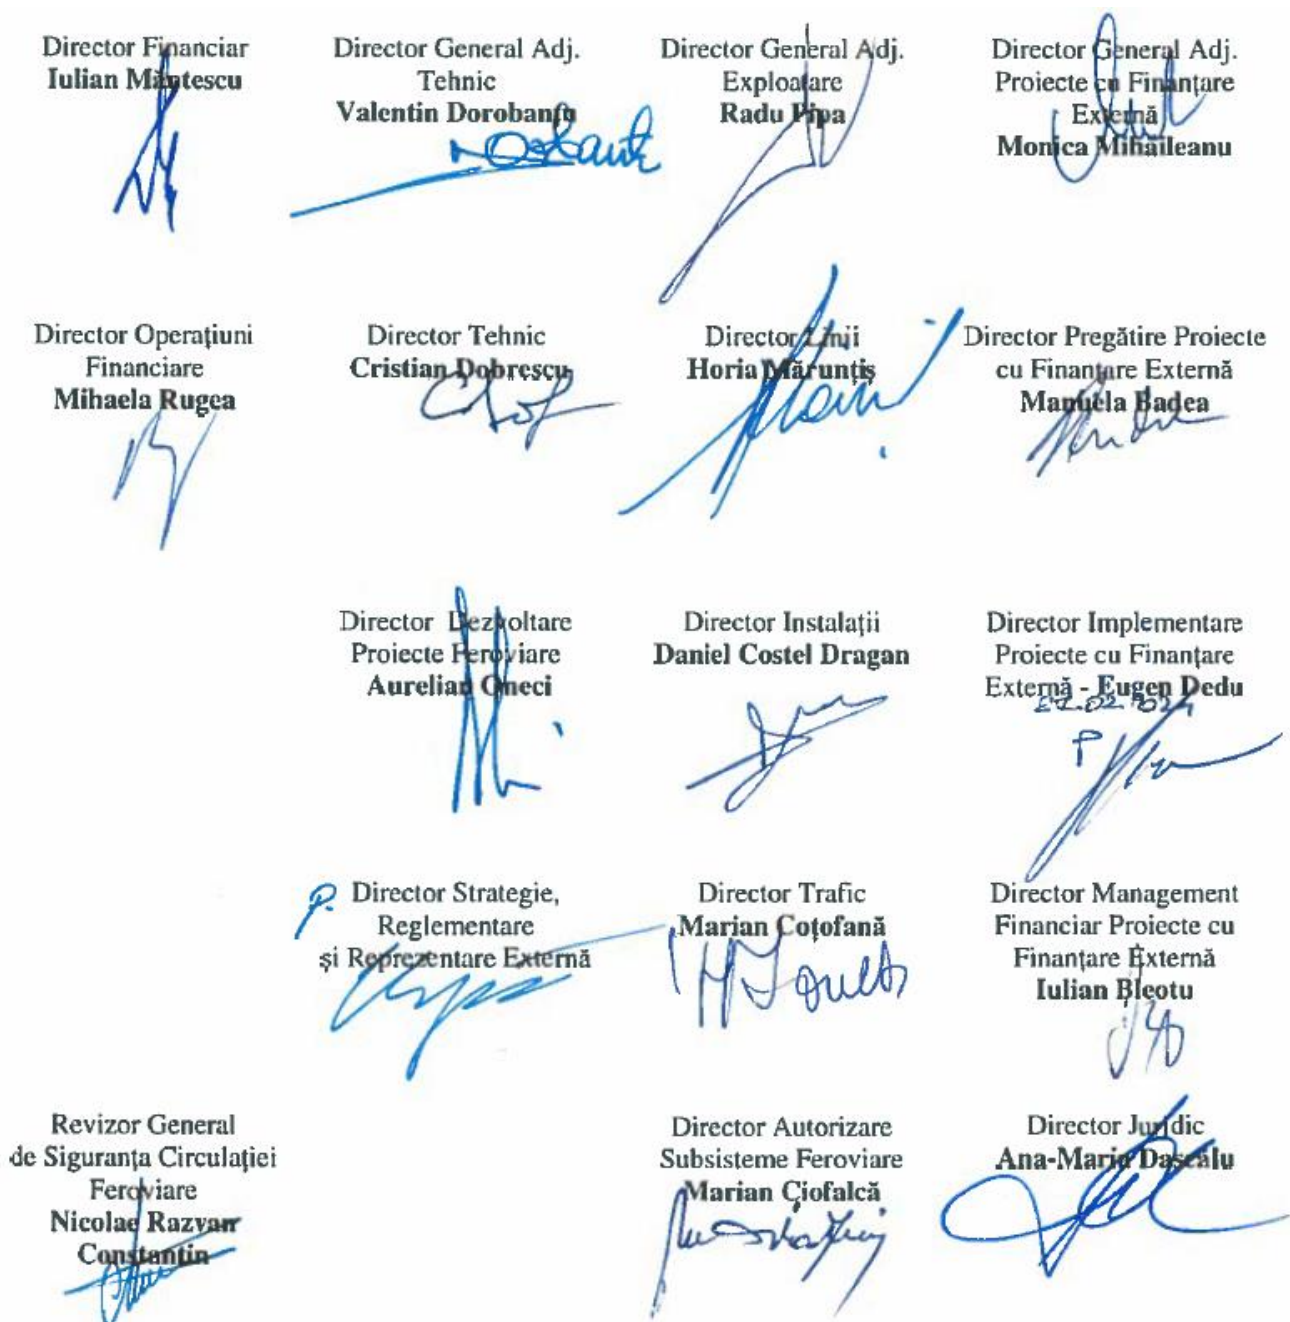 Director Financiar
Iulian Măntescu
Director General Adj.
Tehnic
Valentin Dorobanțu
Director General Adj.
Exploatare
Radu Pipa
Director General Adj.
Proiecte cu Finanțare
Externă
Monica Mihaileanu
Director Operațiuni
Financiare
Mihaela Rugea
Director Tehnic
Cristian Dobrescu
Director Linii
Horia Mărunțiș
Director Pregătire Proiecte
cu Finanțare Externă
Manuela Badea
Director Dezvoltare
Proiecte Feroviare
Aurelian Oneci
Director Instalații
Daniel Costel Dragan
Director Implementare
Proiecte cu Finanțare
Externă - Eugen Dedu
P
P. Director Strategie,
Reglementare
și Reprezentare Externă
Director Trafic
Marian Coțofană
Director Management
Financiar Proiecte cu
Finanțare Externă
Iulian Bleotu
Revizor General
de Siguranța Circulației
Feroviare
Nicolae Razvan
Constantin
Director Autorizare
Subsisteme Feroviare
Marian Ciofalcă
Director Juridic
Ana-Maria Dascălu